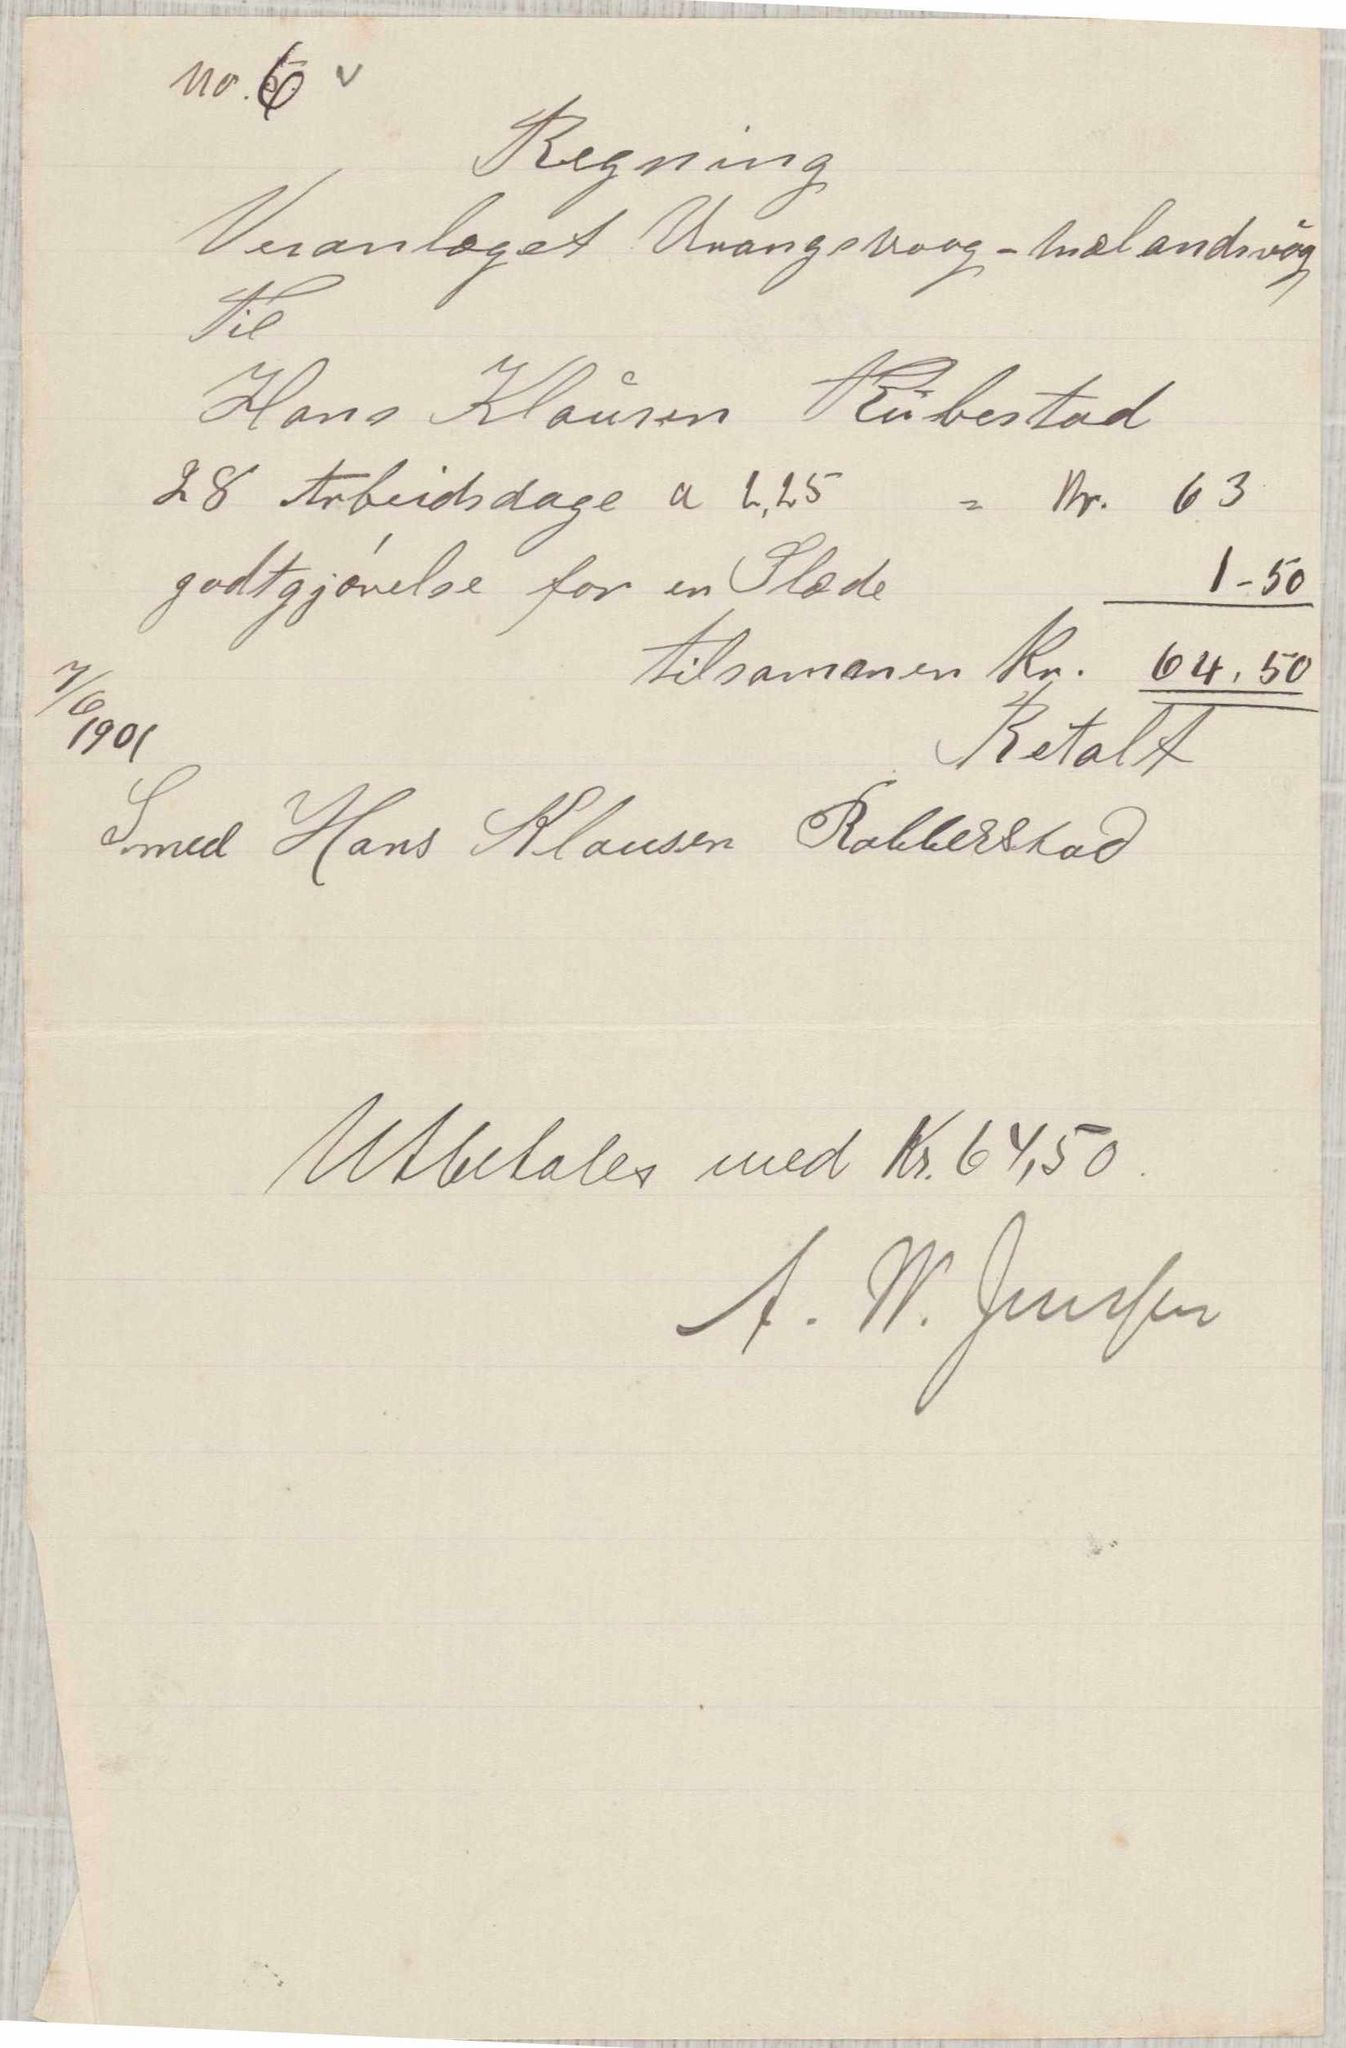 No. 6 v
Regning
Veianlæget Urangsvaag - Mælandsvåg
til
Hans Klausen Rübestad
28 Arbeidsdage a 2,25 = Kr. 63
godtgjörelse for en Slæde 1-50
tilsammen Kr. 64.50
7/6 1901
Betalt
Smed Hans Klausen Rabberstad
Utbetales med Kr. 64,50.
A. W. Jensen